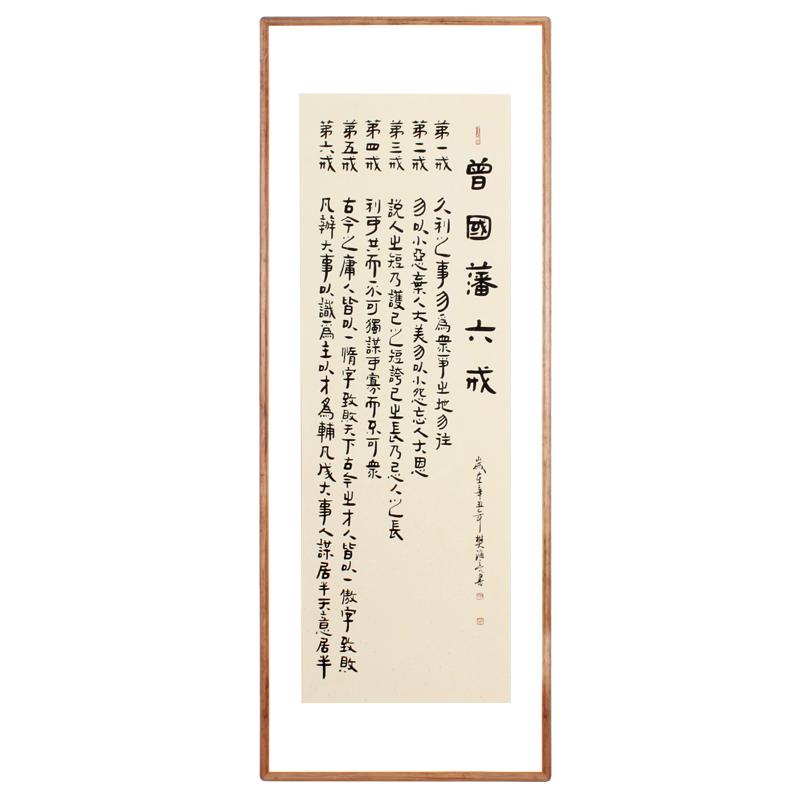 曾國藩六戒
第一戒 久利之事勿爲衆爭之地勿往
第二戒 勿以小惡棄人大美勿以小怨忘人大恩
第三戒 説人之短乃護己之短誇己之長乃忌人之長
第四戒 利可共而不可獨謀可寡而不可衆
第五戒 古今之庸人皆以一惰字致敗天下古今之才人皆以一傲字致敗
第六戒 凡辦大事以識爲主以才爲輔凡成大事人謀居半天意居半
歲在辛丑年樊書